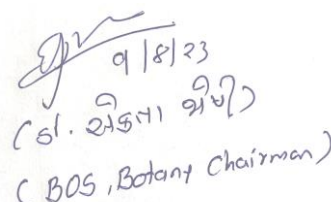 9/8/23
(ડૉ. એકતા જોષી)
(BOS, Botany Chairman)